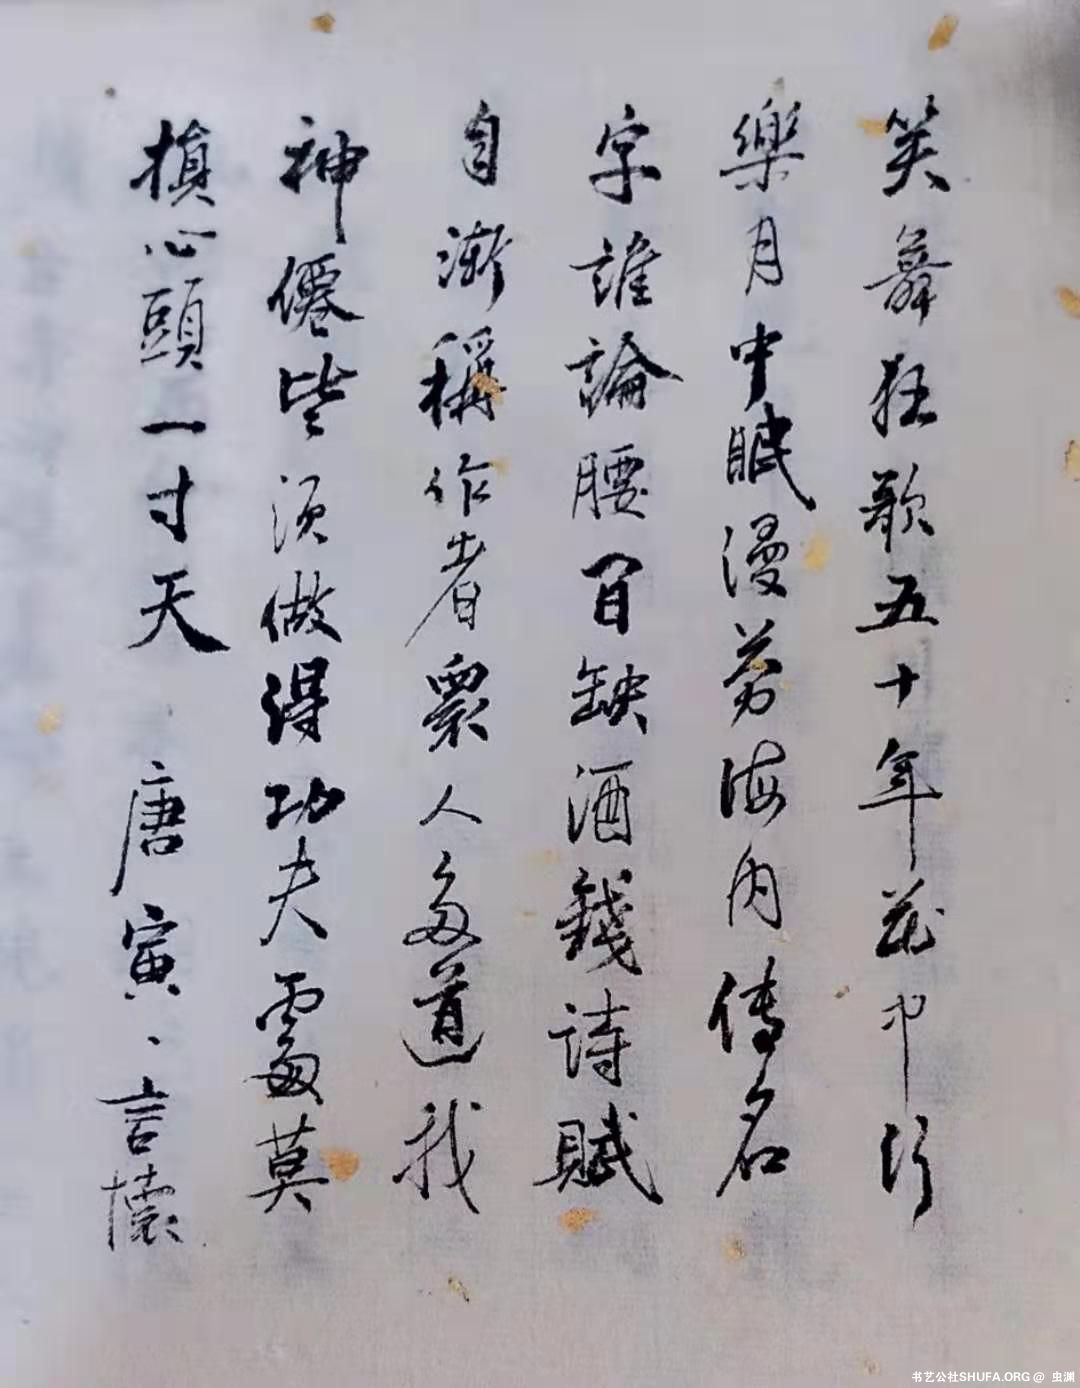 笑舞狂歌五十年花中行
樂月中眠漫勞海內傳名
字誰論腰間缺酒錢詩賦
自漸稱作者衆人多道我
神僊些須做得功夫處莫
損心頭一寸天 唐寅、言懷
书艺公社SHUFA.ORG @ 虫渊